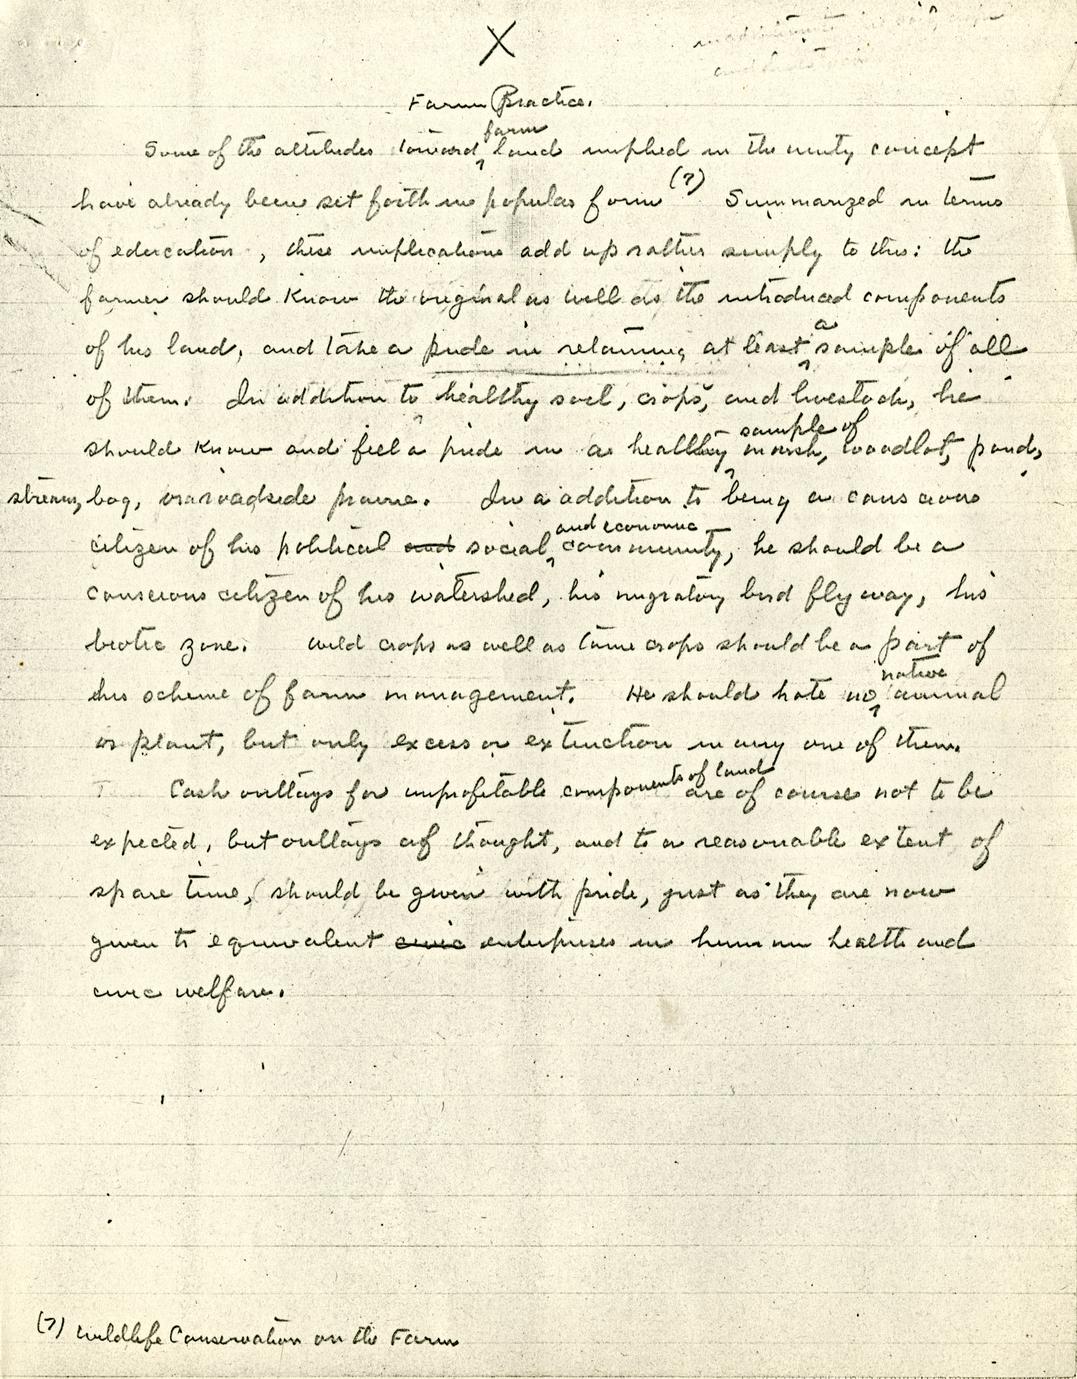 X
Farm Practice.
Some of the attitudes toward farm land implied in the unity concept
have already been set forth in popular form (7) Summarized in terms
of education, these implications add up rather simply to this: the
farmer should know the original as well as the introduced components
of his land, and take a pride in retaining at least a sample of all
of them. In addition to healthy soil, crops, and livestock, he
should know and feel a pride in a healthy sample of marsh, woodlot, pond,
stream, bog, or roadside prairie. In addition to being a conscious
citizen of his political and social and economic community, he should be a
conscious citizen of his watershed, his migratory bird flyway, his
biotic zone. Wild crops as well as tame crops should be a part of
his scheme of farm management. He should hate no native animal
or plant, but only excess or extinction in any one of them.
Cash outlays for unprofitable components of land are of course not to be
expected, but outlays of thought, and to a reasonable extent of
spare time, should be given with pride, just as they are now
given to equivalent civic enterprises in human health and
civic welfare.
(7) Wildlife Conservation on the Farm